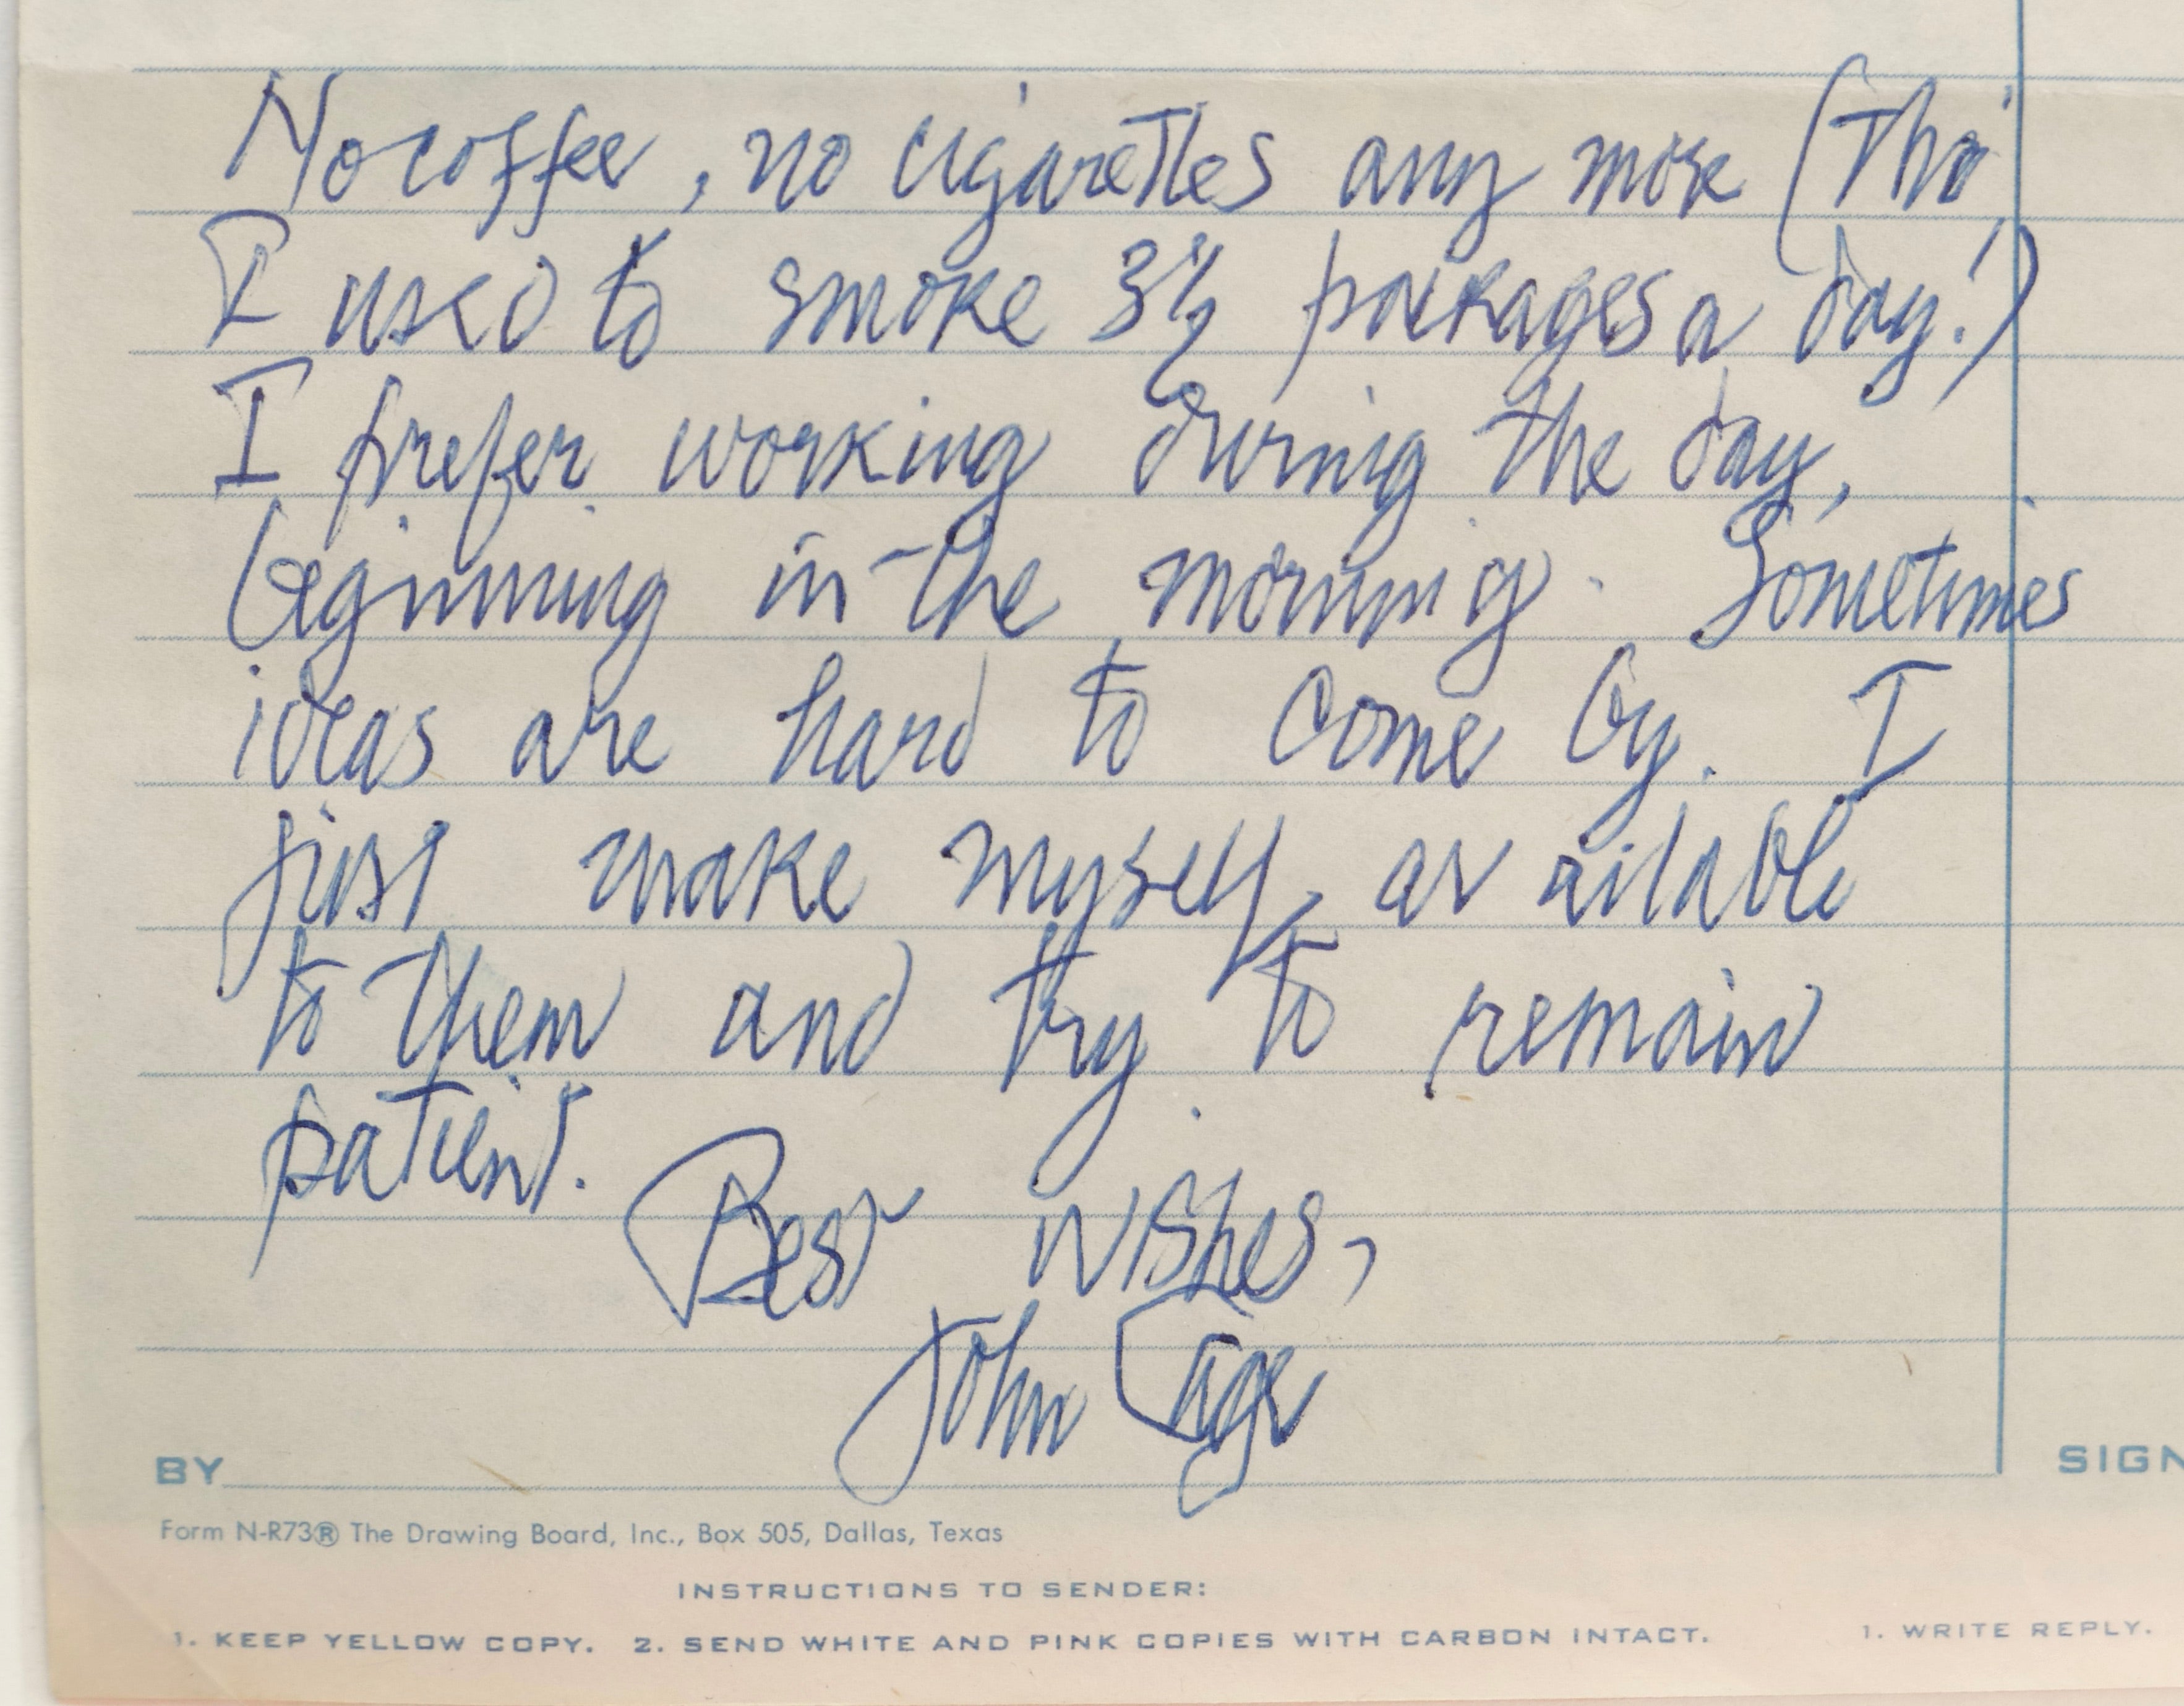 No coffee, no cigarettes any more (Tho'
I used to smoke 3½ packages a day!)
I prefer working during the day,
beginning in the morning. Sometimes
ideas are hard to come by. I
just make myself available
to them and try to remain
patient.
Best wishes,
John Cage
BY
SIGN
Form N-R73® The Drawing Board, Inc., Box 505, Dallas, Texas
INSTRUCTIONS TO SENDER:
1. KEEP YELLOW COPY. 2. SEND WHITE AND PINK COPIES WITH CARBON INTACT.
1. WRITE REPLY.